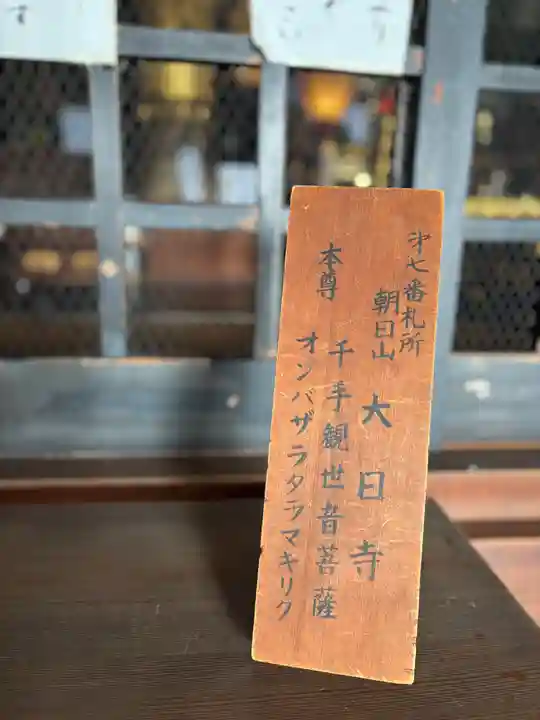 㐧七番札所
朝日山 大日寺
本尊 千手観世音菩薩
オンバザラタラマキリク